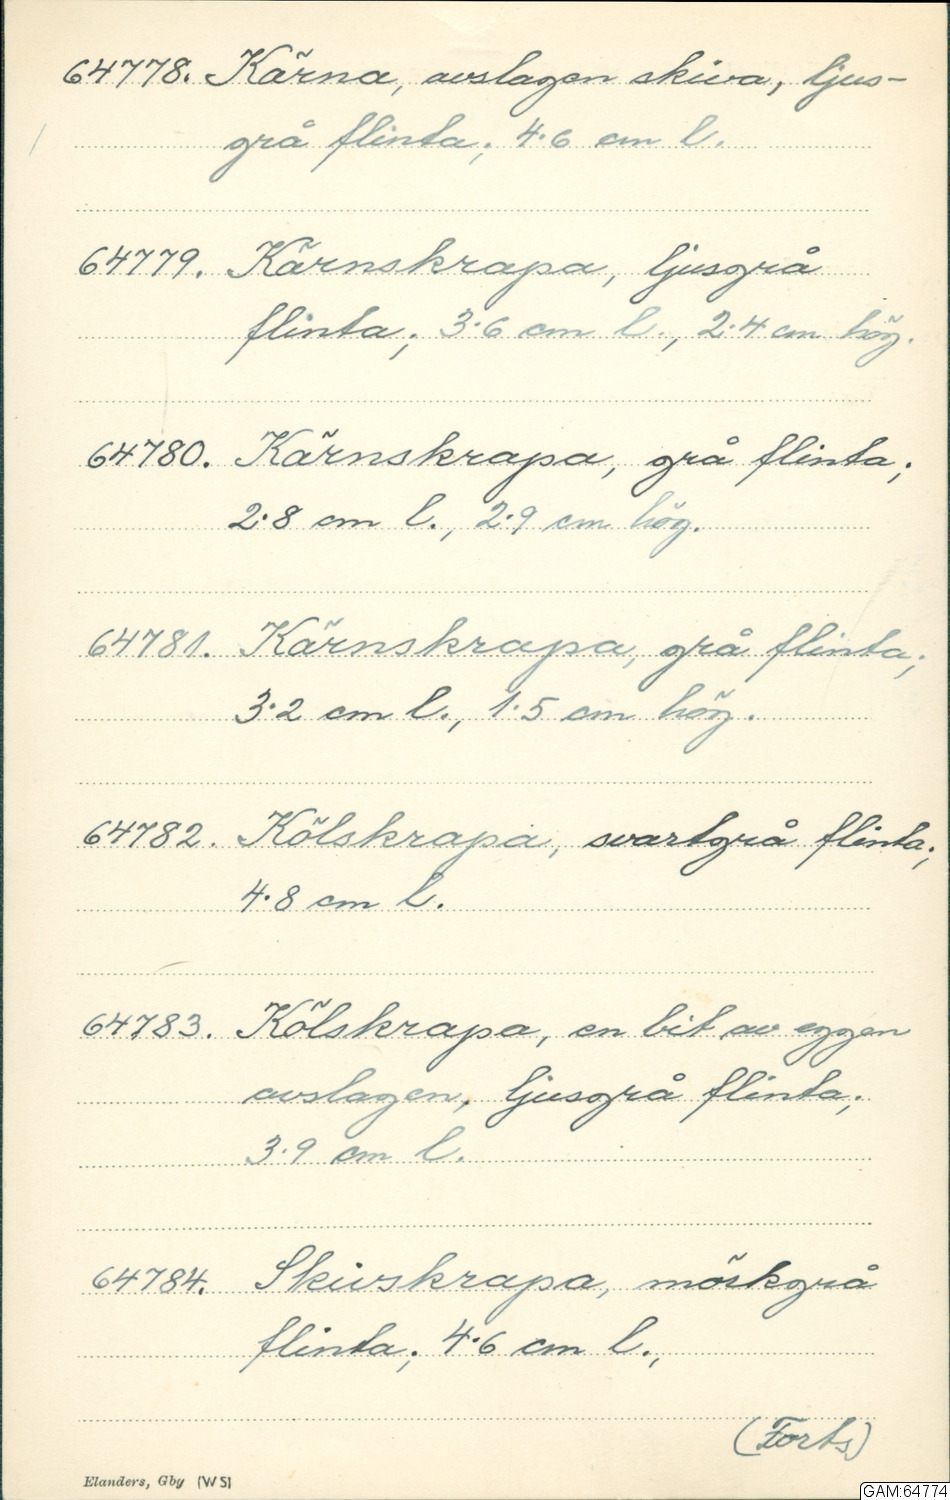 64778. Kärna, avslagen skiva, ljus-
grå flinta; 4.6 cm l.
64779. Kärnskrapa, ljusgrå
flinta; 3.6 cm l., 2.4 cm hög.
64780. Kärnskrapa, grå flinta;
2.8 cm l., 2.9 cm hög.
64781. Kärnskrapa, grå flinta;
3.2 cm l., 1.5 cm hög.
64782. Kölskrapa, svartgrå flinta;
4.8 cm l.
64783. Kölskrapa, en bit av eggen
avslagen, ljusgrå flinta;
3.9 cm l.
64784. Skivskrapa, mörkgrå
flinta; 4.6 cm l.,
(Forts)
Elanders, Gby (WS)
GAM:64774